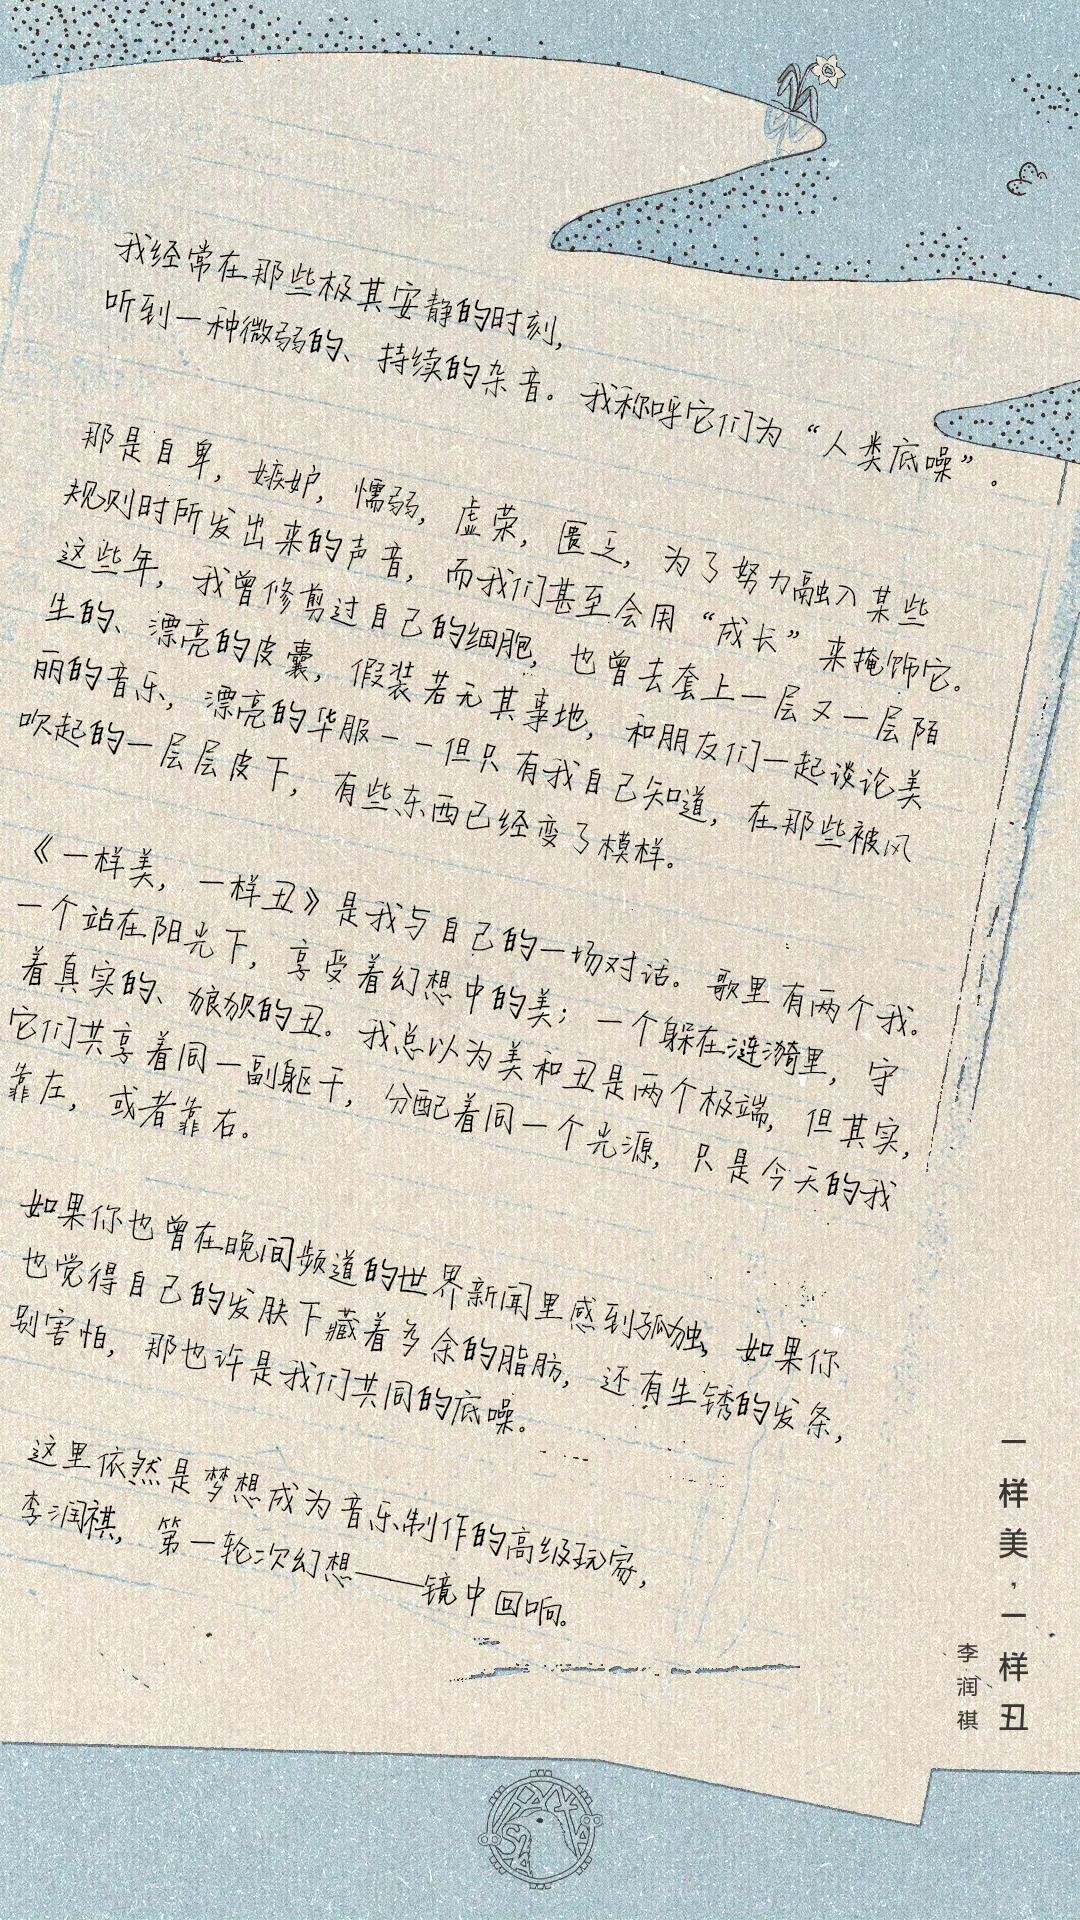 我经常在那些极其安静的时刻，
听到一种微弱的、持续的杂音。我称呼它们为“人类底噪”。
那是自卑，嫉妒，懦弱，虚荣，匮乏，为了努力融入某些
规则时所发出来的声音，而我们甚至会用“成长”来掩饰它。
这些年，我曾修剪过自己的细胞，也曾去套上一层又一层陌
生的、漂亮的皮囊，假装若无其事地，和朋友们一起谈论美
丽的音乐，漂亮的华服——但只有我自己知道，在那些被风
吹起的一层层皮下，有些东西已经变了模样。
《一样美，一样丑》是我与自己的一场对话。歌里有两个我。
一个站在阳光下，享受着幻想中的美；一个躲在涟漪里，守
着真实的、狼狈的丑。我总以为美和丑是两个极端，但其实，
它们共享着同一副躯干，分配着同一个光源，只是今天的我
靠左，或者靠右。
如果你也曾在晚间频道的世界新闻里感到孤独，如果你
也觉得自己的发肤下藏着多余的脂肪，还有生锈的发条，
别害怕，那也许是我们共同的底噪。
这里依然是梦想成为音乐制作的高级玩家，
李润祺，第一轮次幻想——镜中回响。
一样美，一样丑
李润祺